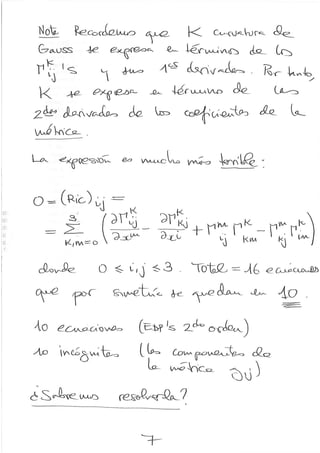 Nota Recordemos que K curvatura de
Gauss se expresa en términos de los
Γᵏᵢⱼ's y sus 1ᵃˢ derivadas. Por tanto,
K se expresa en término de las
2ᵈᵃˢ derivadas de los coeficientes de la
métrica.
La expresión es mucho más terrible:
0 = (Ric)ᵢⱼ =
= 3 Σ k,m=0 ( ∂Γᵏᵢⱼ/∂xᵐ − ∂Γᵏₖⱼ/∂xⁱ + Γᵐᵢⱼ Γᵏₖₘ − Γᵐₖⱼ Γᵏᵢₘ )
donde 0 ≤ i,j ≤ 3. Total = 16 ecuaciones
que por simetría se quedan en 10.
10 ecuaciones (EDP's 2ᵈᵒ orden)
10 incógnitas (las componentes de
la métrica gᵢⱼ)
¿Sabremos resolverla?
7